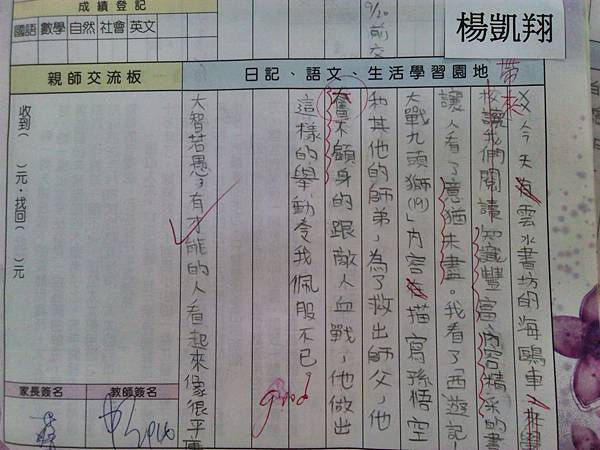 楊凱翔
9/10 前交
成績登記
國語 數學 自然 社會 英文
日記、語文、生活學習園地
親師交流板
今天有雲水書坊的海鷗車來學
帶來
校讓我們閱讀知識豐富內容精采的書
讓人看了意猶未盡。我看了「西遊記-
大戰九頭獅(19)」內容在描寫孫悟空
和其他的師弟,為了救出師父,他
奮不顧身的跟敵人血戰,他做出
這樣的舉動令我佩服不已。
good
大智若愚:有才能的人看起來像很平庸
收到( )元.找回( )元
家長簽名
教師簽名